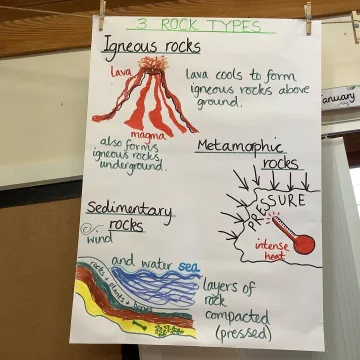 3 ROCK TYPES
Igneous rocks
lava
lava cools to form
igneous rocks above
ground.
magma
also forms
igneous rocks
underground.
Metamorphic
rocks
PRESSURE
intense
heat
Sedimentary
rocks
wind
and water sea
rocks + plants + bones
layers of
rock
compacted
(pressed)
anuary